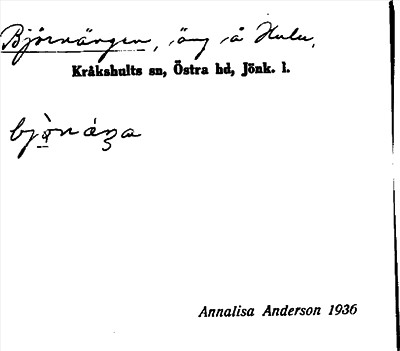 Björnängen, äng å Hulu,
Kråkshults sn, Östra hd, Jönk. l.
bjò̠n áŋa
Annalisa Anderson 1936